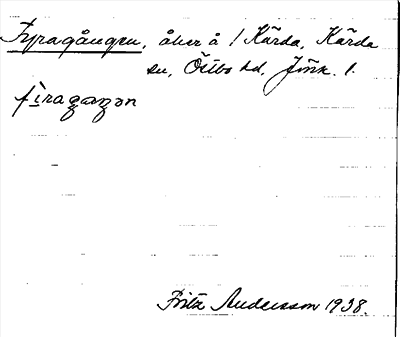 Fyragången, åker å 1 Kärda, Kärda
sn, Östbo hd, Jönk. l.
fìragaŋən
Fritz Andersson 1938.